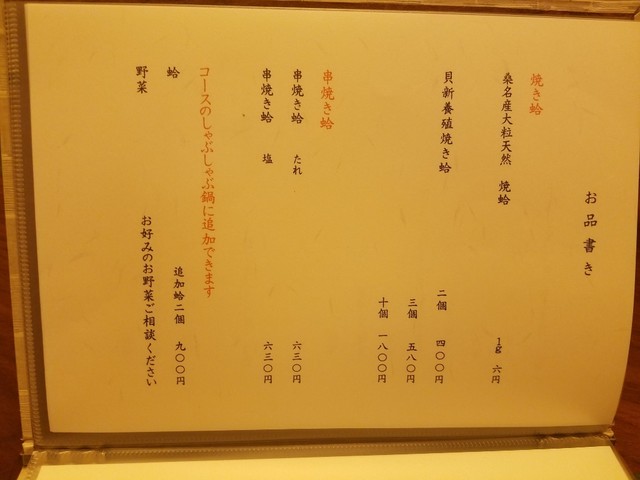 お品書き
焼き蛤
桑名産大粒天然 焼蛤 1g 六円
貝新養殖焼き蛤 二個 四〇〇円
三個 五八〇円
十個 一八〇〇円
串焼き蛤
串焼き蛤 たれ 六三〇円
串焼き蛤 塩 六三〇円
コースのしゃぶしゃぶ鍋に追加できます
蛤 追加蛤二個 九〇〇円
野菜 お好みのお野菜ご相談ください